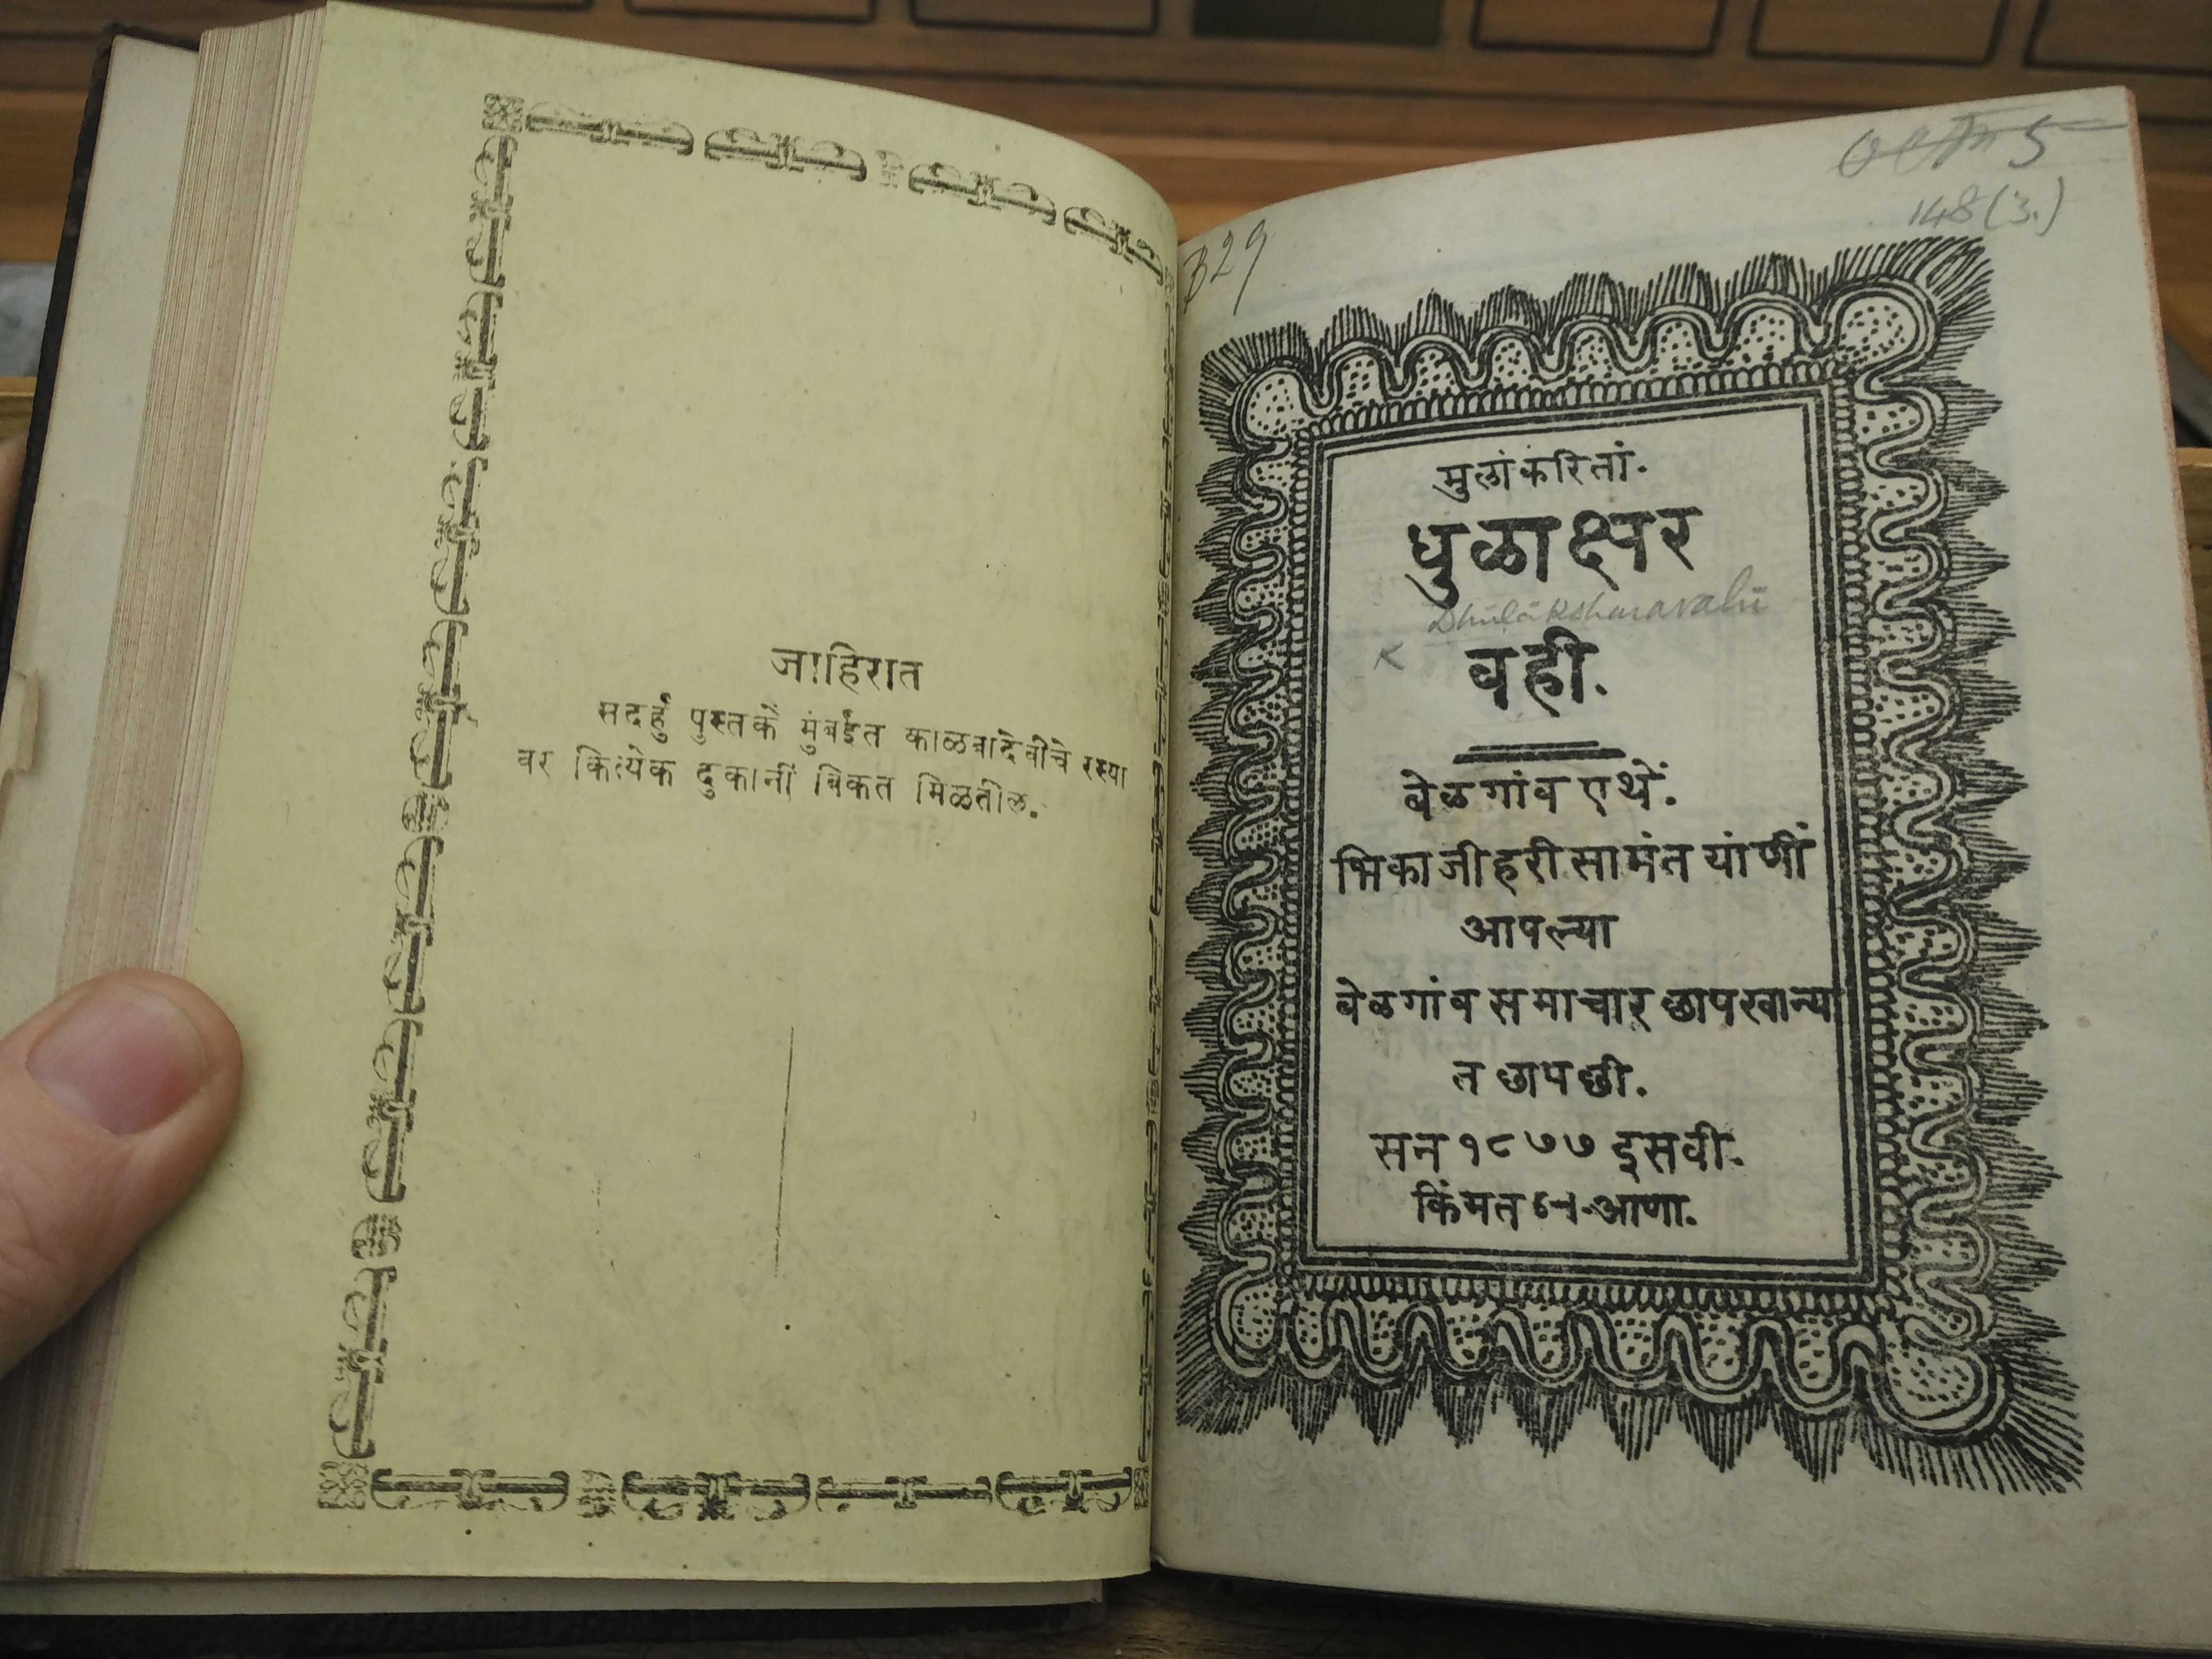 जाहिरात
सदर्हु पुस्तकें मुंबईत काळबादेवीचे रस्त्या
वर कित्येक दुकानीं विकत मिळतील.
148(3.)
B29
मुलांकरितां.
धुळाक्षर
Dhūlāksharavahi
वही.
बेळगांव एथें.
भिकाजी हरी सामंत यांणीं
आपल्या
बेळगांव समाचार् छापखान्या
त छापली.
सन १८७७ इसवी.
किंमत आणा.